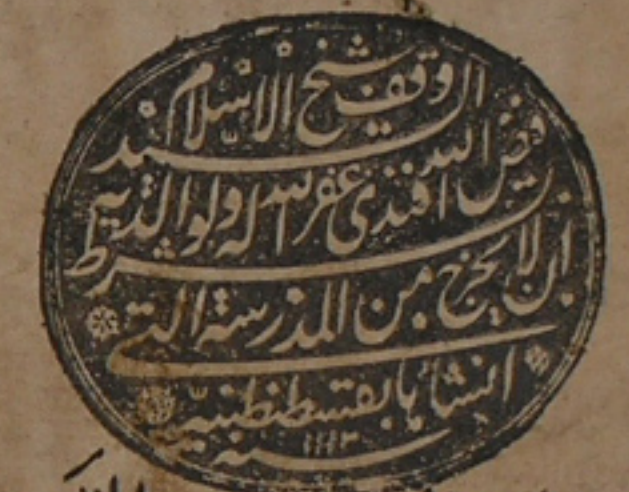 وقف شيخ الاسلام السيد
فيض الله افندى غفر الله له ولوالديه
بشرط ان لا يخرج من المدرسة التي
انشاها بقسطنطنية
سنه ١١١٣